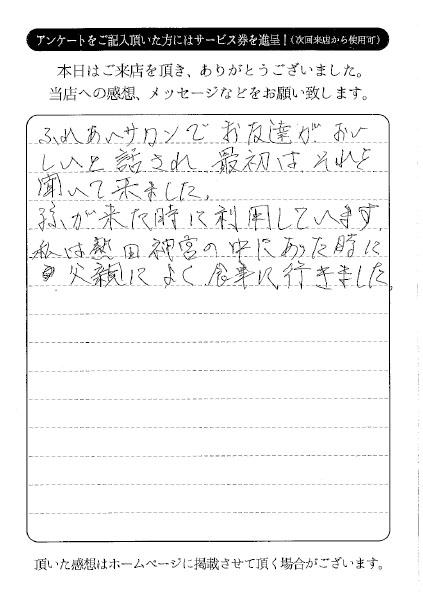 アンケートをご記入頂いた方にはサービス券を進呈！（次回来店から使用可）
本日はご来店を頂き、ありがとうございました。
当店への感想、メッセージなどをお願い致します。
ふれあいサロンでお友達がおい
しいと話され最初はそれを
聞いて来ました。
孫が来た時に利用しています。
私は熱田神宮の中にあった時に
父親によく食事に行きました。
頂いた感想はホームページに掲載させて頂く場合がございます。